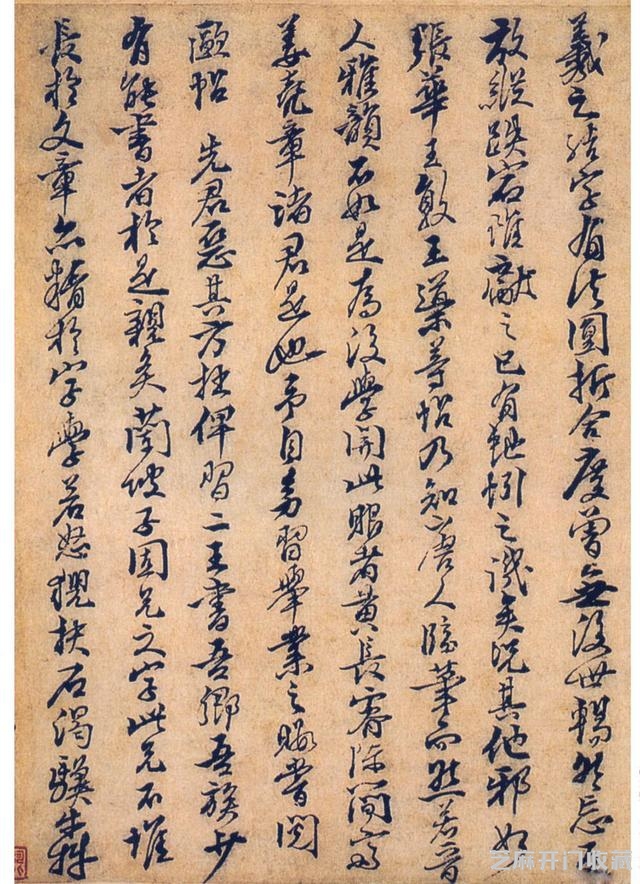 羲之結字有法圓折合度曾無後世暢然忘
放縱跌宕惟獻之已有虵蚓之譏矣況其他邪如
張華王敦王導等帖乃知唐人臨摹而然若晉
人雅韻不如是為後學開此眼者黃長睿陳簡齋
姜堯章諸君是也予自幼習舉業之暇嘗閱
歐帖 先君惡其方拙俾習二王書吾鄉吾族少
有能書者於是親炙蘭坡子固兄之字此兄不惟
長於文章亦精於字學若怒猊抉石渴驥奔
芝麻开门收藏